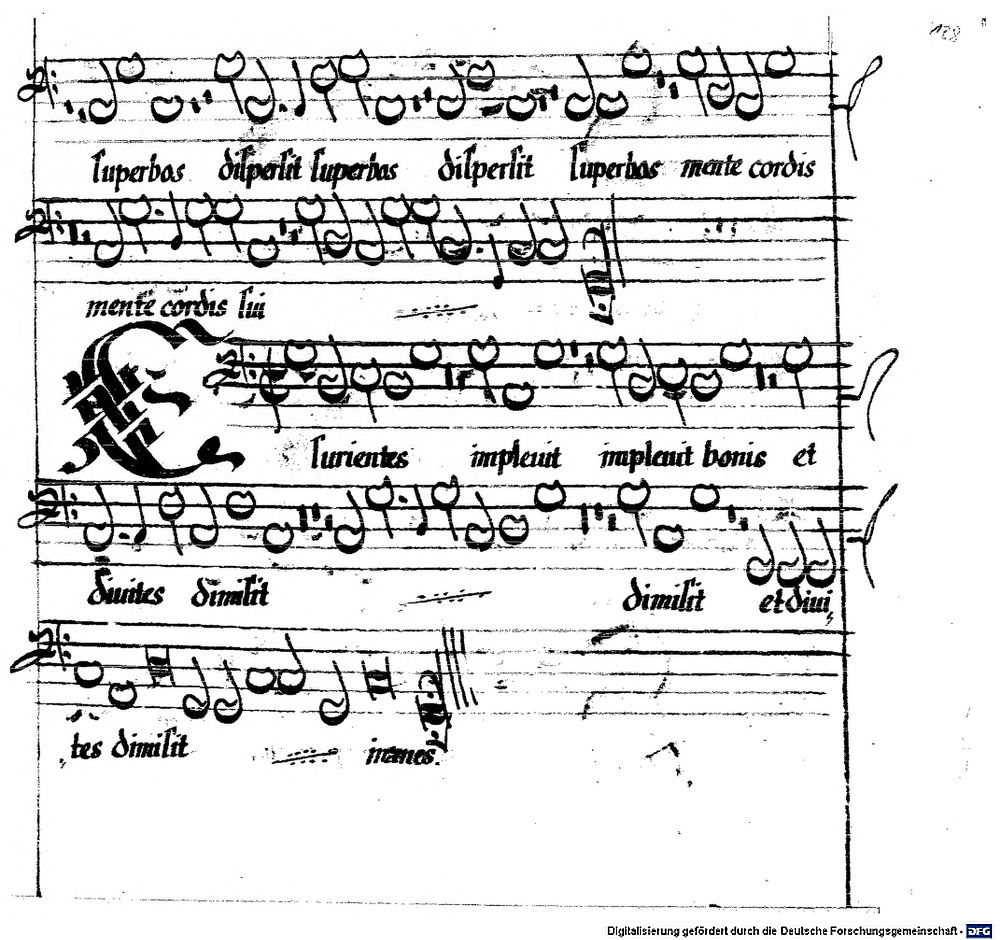 128
superbos dispersit superbos dispersit superbos mente cordis
mente cordis sui
Esurientes impleuit impleuit bonis et
diuites dimisit dimisit et diui,
tes dimisit inanes.
Digitalisierung gefördert durch die Deutsche Forschungsgemeinschaft - DFG